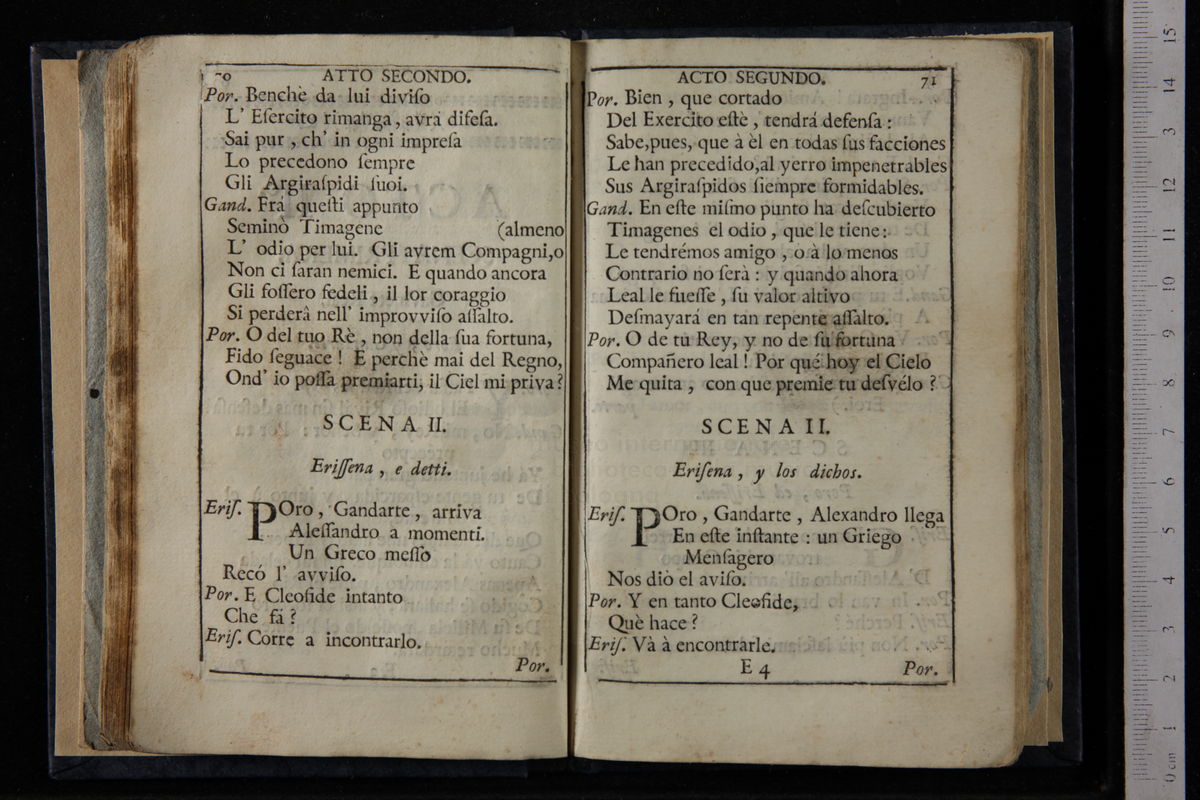 70 ATTO SECONDO.
Por. Benchè da lui diviſo
L' Eſercito rimanga, avrá difeſa.
Sai pur, ch' in ogni impreſa
Lo precedono ſempre
Gli Argiraſpidi ſuoi.
Gand. Frá queſti appunto
Seminò Timagene (almeno
L' odio per lui. Gli avrem Compagni,o
Non ci ſaran nemici. E quando ancora
Gli foſſero fedeli, il lor coraggio
Si perderà nell' improvviſo aſſalto.
Por. O del tuo Rè, non della ſua fortuna,
Fido ſeguace! E perchè mai del Regno,
Ond' io poſſa premiarti, il Ciel mi priva?
SCENA II.
Eriſſena, e detti.
Eriſ. POro, Gandarte, arriva
Aleſſandro a momenti.
Un Greco meſſo
Recó l' avviſo.
Por. E Cleoſide intanto
Che fá?
Eriſ. Corre a incontrarlo.
Por.
ACTO SEGUNDO. 71
Por. Bien, que cortado
Del Exercito eſtè, tendrá defenſa:
Sabe,pues, que à èl en todas ſus facciones
Le han precedido,al yerro impenetrables
Sus Argiraſpidos ſiempre formidables.
Gand. En eſte miſmo punto ha deſcubierto
Timagenes el odio, que le tiene:
Le tendrémos amigo, o à lo menos
Contrario no ſerà: y quando ahora
Leal le fueſſe, ſu valor altivo
Deſmayará en tan repente aſſalto.
Por. O de tu Rey, y no de ſu fortuna
Compañero leal! Por qué hoy el Cielo
Me quita, con que premie tu deſvélo?
SCENA II.
Eriſena, y los dichos.
Eriſ. POro, Gandarte, Alexandro llega
En eſte inſtante: un Griego
Menſagero
Nos diò el aviſo.
Por. Y en tanto Cleoſide,
Què hace?
Eriſ. Và à encontrarle.
E 4 Por.
0 cm 1 2 3 4 5 6 7 8 9 10 11 12 13 14 15